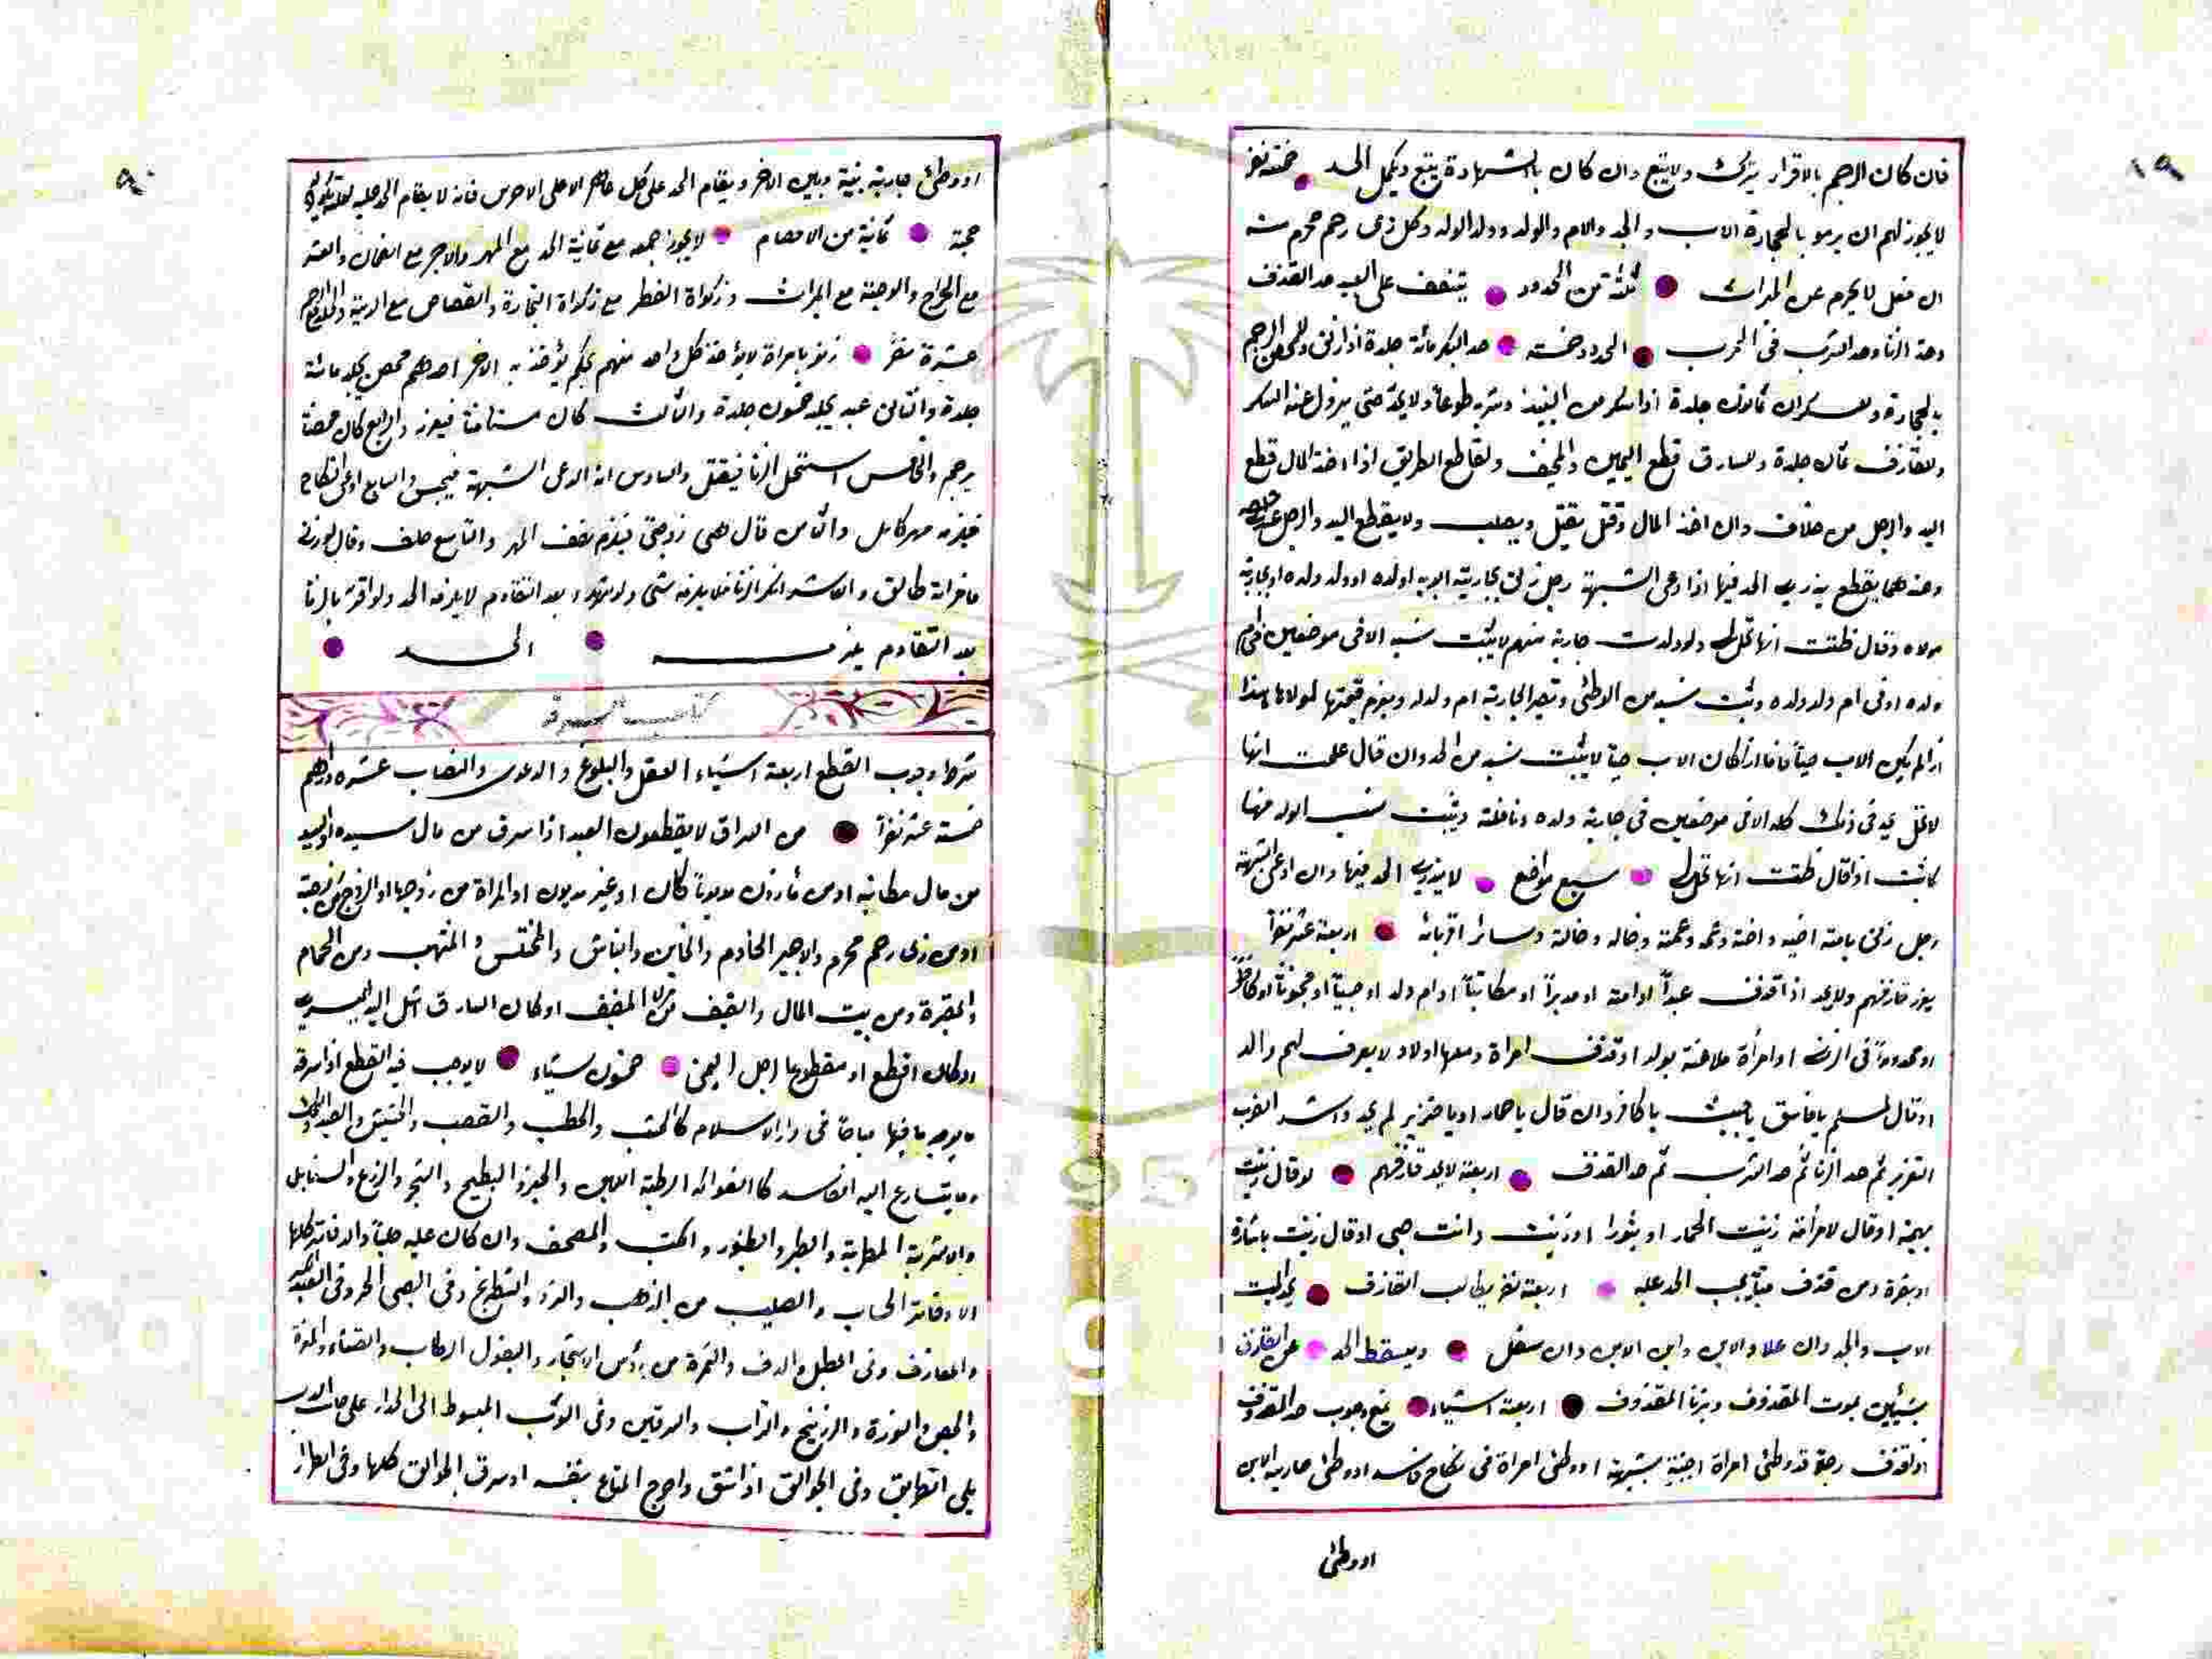 ١٩
فان كان الرجم بالاقرار يترك ولا يتبع وان كان بالشهادة يتبع ويكمل الحد خمسة نفر
لا يجوز لهم ان يرمو بالحجارة الاب والجد والام والولد وولد الولد وكل ذى رحم محرم منه
ان فعل لا يحرم عن الميراث ثلثة من الحدود يتنصف على العبد حد القذف
وحد الزنا وحد الشرب فى الحرب الحدود خمسة حد البكر مائة جلدة اذا زنى وللمحصن الرجم
بالحجارة وللسكران ثمانون جلدة اذا سكر من النبيذ وشربه طوعاً ولا يحد حتى يزول عنه السكر
وللقاذف ثمانون جلدة وللسارق قطع اليمين ولقاطع الطريق اذا اخذ المال قطع
اليد والرجل من خلاف وان اخذ المال وقتل يقتل ويصلب ولا يقطع اليد والرجل
وعندهما يقطع الحد فيها اذا ادعى الشبهة رجل زنى بجارية ابويه او لده او ولد ولده او بجارية
مولاه وقال ظننت انها تحل لى ولو ولدت جارية منهم لا يثبت نسبه الا فى موضعين
ولده او فى ام ولد ولده وثبت نسبه من الوطئ وتصير الجارية ام ولد له ويغرم قيمتها لمولاها هذا
اذا لم يكن الاب حياً فاما اذا كان الاب حيا لا يثبت نسبه من الجد وان قال علمت انها
لا تحل يحد فى ذلك كله الا فى موضعين فى جارية ولده ونافلته ويثبت نسب الولد منها
كانت اذا قال ظننت انها تحل لى سبع مواضع الحد فيها وان ادعى الشبهة
رجل زنى بامة اخيه واخته وعمه وعمته وخاله وخالته وسائر اقربائه اربعة عشر نفراً
يعزر قاذفهم ولا يحد اذا قذف عبداً او امة او مدبراً او مكاتباً او ام ولد او صبياً او مجنوناً او كافراً
او محدوداً فى الزنا او امرأة ملاعنة بولد او قذف امراة ومعها اولاد لا يعرف لهم والد
او قال لمسلم يا فاسق يا خبيث يا كافر وان قال يا حمار او يا خنزير لم يحد واشد الضرب
التعزير ثم حد الزنا ثم حد الشرب ثم حد القذف اربعة لا يحد قاذفهم لو قال زنيت
بهيمة او قال لامرأته زنيت الحمار او بثور او زنيت وانت صبى او قال زنيت بناقة
او بقرة ومن قذف ميتاً يجب الحد عليه اربعة نفر يطالب القاذف بحد الميت
الاب والجد وان علا والابن وابن الابن وان سفل ويسقط الحد عن القاذف
بشيئين بموت المقذوف وبزنا المقذوف اربعة اشياء يمنع وجوب حد القذف
اذا قذف رجلا قد وطئ امراة اجنبية بشبهة او وطئ امراة فى نكاح فاسد او وطئ جارية الابن
او وطئ
٩٠
او وطئ جارية بينه وبين الاخر ويقام الحد على كل الا على الاخرس فانه لا يقام الحد عليه
حجة ثمانية من الاحكام لا يجوز جمعه مع ثمانية الحد مع المهر والاجر مع الضمان والعشر
مع الخراج والوصية مع الميراث وزكواة الفطر مع زكواة التجارة والقصاص مع الدية والجلد مع الرجم
عشرة نفر زنو بامراة لا يؤخذ كل واحد منهم بحكم يؤخذ به الاخر احدهم محصن يجلد مائة
جلدة والثانى عبد يجلد خمسون جلدة والثالث كان مستامناً فيعزر والرابع كان محصنا
يرجم والخامس استحل الزنا فيقتل والسادس انه ادعى الشبهة فيحبس والسابع ادعى النكاح
فيلزمه مهر كامل والثامن قال هى زوجتى فيلزم نصف المهر والتاسع حلف وقال لو زنى
فامراته طالق والعاشر انكر الزنا فلا يلزمه شئ ولو شهدوا بعد التقادم لا يلزمه الحد ولو اقر بالزنا
بعد التقادم يلزمه الحد
كتاب السرقة
شرط وجوب القطع اربعة اشياء العقل والبلوغ والدعوى والنصاب عشره دراهم
خمسة عشر نفراً من السراق لا يقطعون العبد اذا سرق من مال سيده او السيد
من مال مكاتبه او من ماذون مديوناً كان او غير مديون او المراة من زوجها او الزوج من زوجته
او من ذى رحم محرم والاجير الخادم والخاين والنباش والمختلس والمنتهب ومن الحمام
والمقبرة ومن بيت المال والضيف من المضيف او كان السارق اشل اليد اليسرى
او كان اقطع او مقطوعا رجل اليمنى خمسون شياء لا يوجب فيه القطع اذا سرقه
ما يوجد مباحاً فى دار الاسلام كالخشب والحطب والقصب والحشيش والصيد والسمك
وما يتسارع اليه الفاسد كا الفواكه الرطبة اللبن والخبز والبطيخ والشجر والزرع والسنابل
والاشربة المطربة والطير والطنبور والكتب والمصحف وان كان عليه حلياً والدفاتر كلها
الا دفاتر الحساب والصليب من الذهب والنرد والشطرنج وفى الصبى الحر وفى العبد
والمعازف وفى الطبل والدف والثمرة من رؤس الاشجار والبقول والقثاء
والجص والنورة والزرنيخ والتراب والسرقين وفى الثوب المبسوط الى الجدار على
يلى الطريق وفى الجوالق اذا شق واخرج المتاع بنفسه او سرق الجوالق كلها وفى الطرار